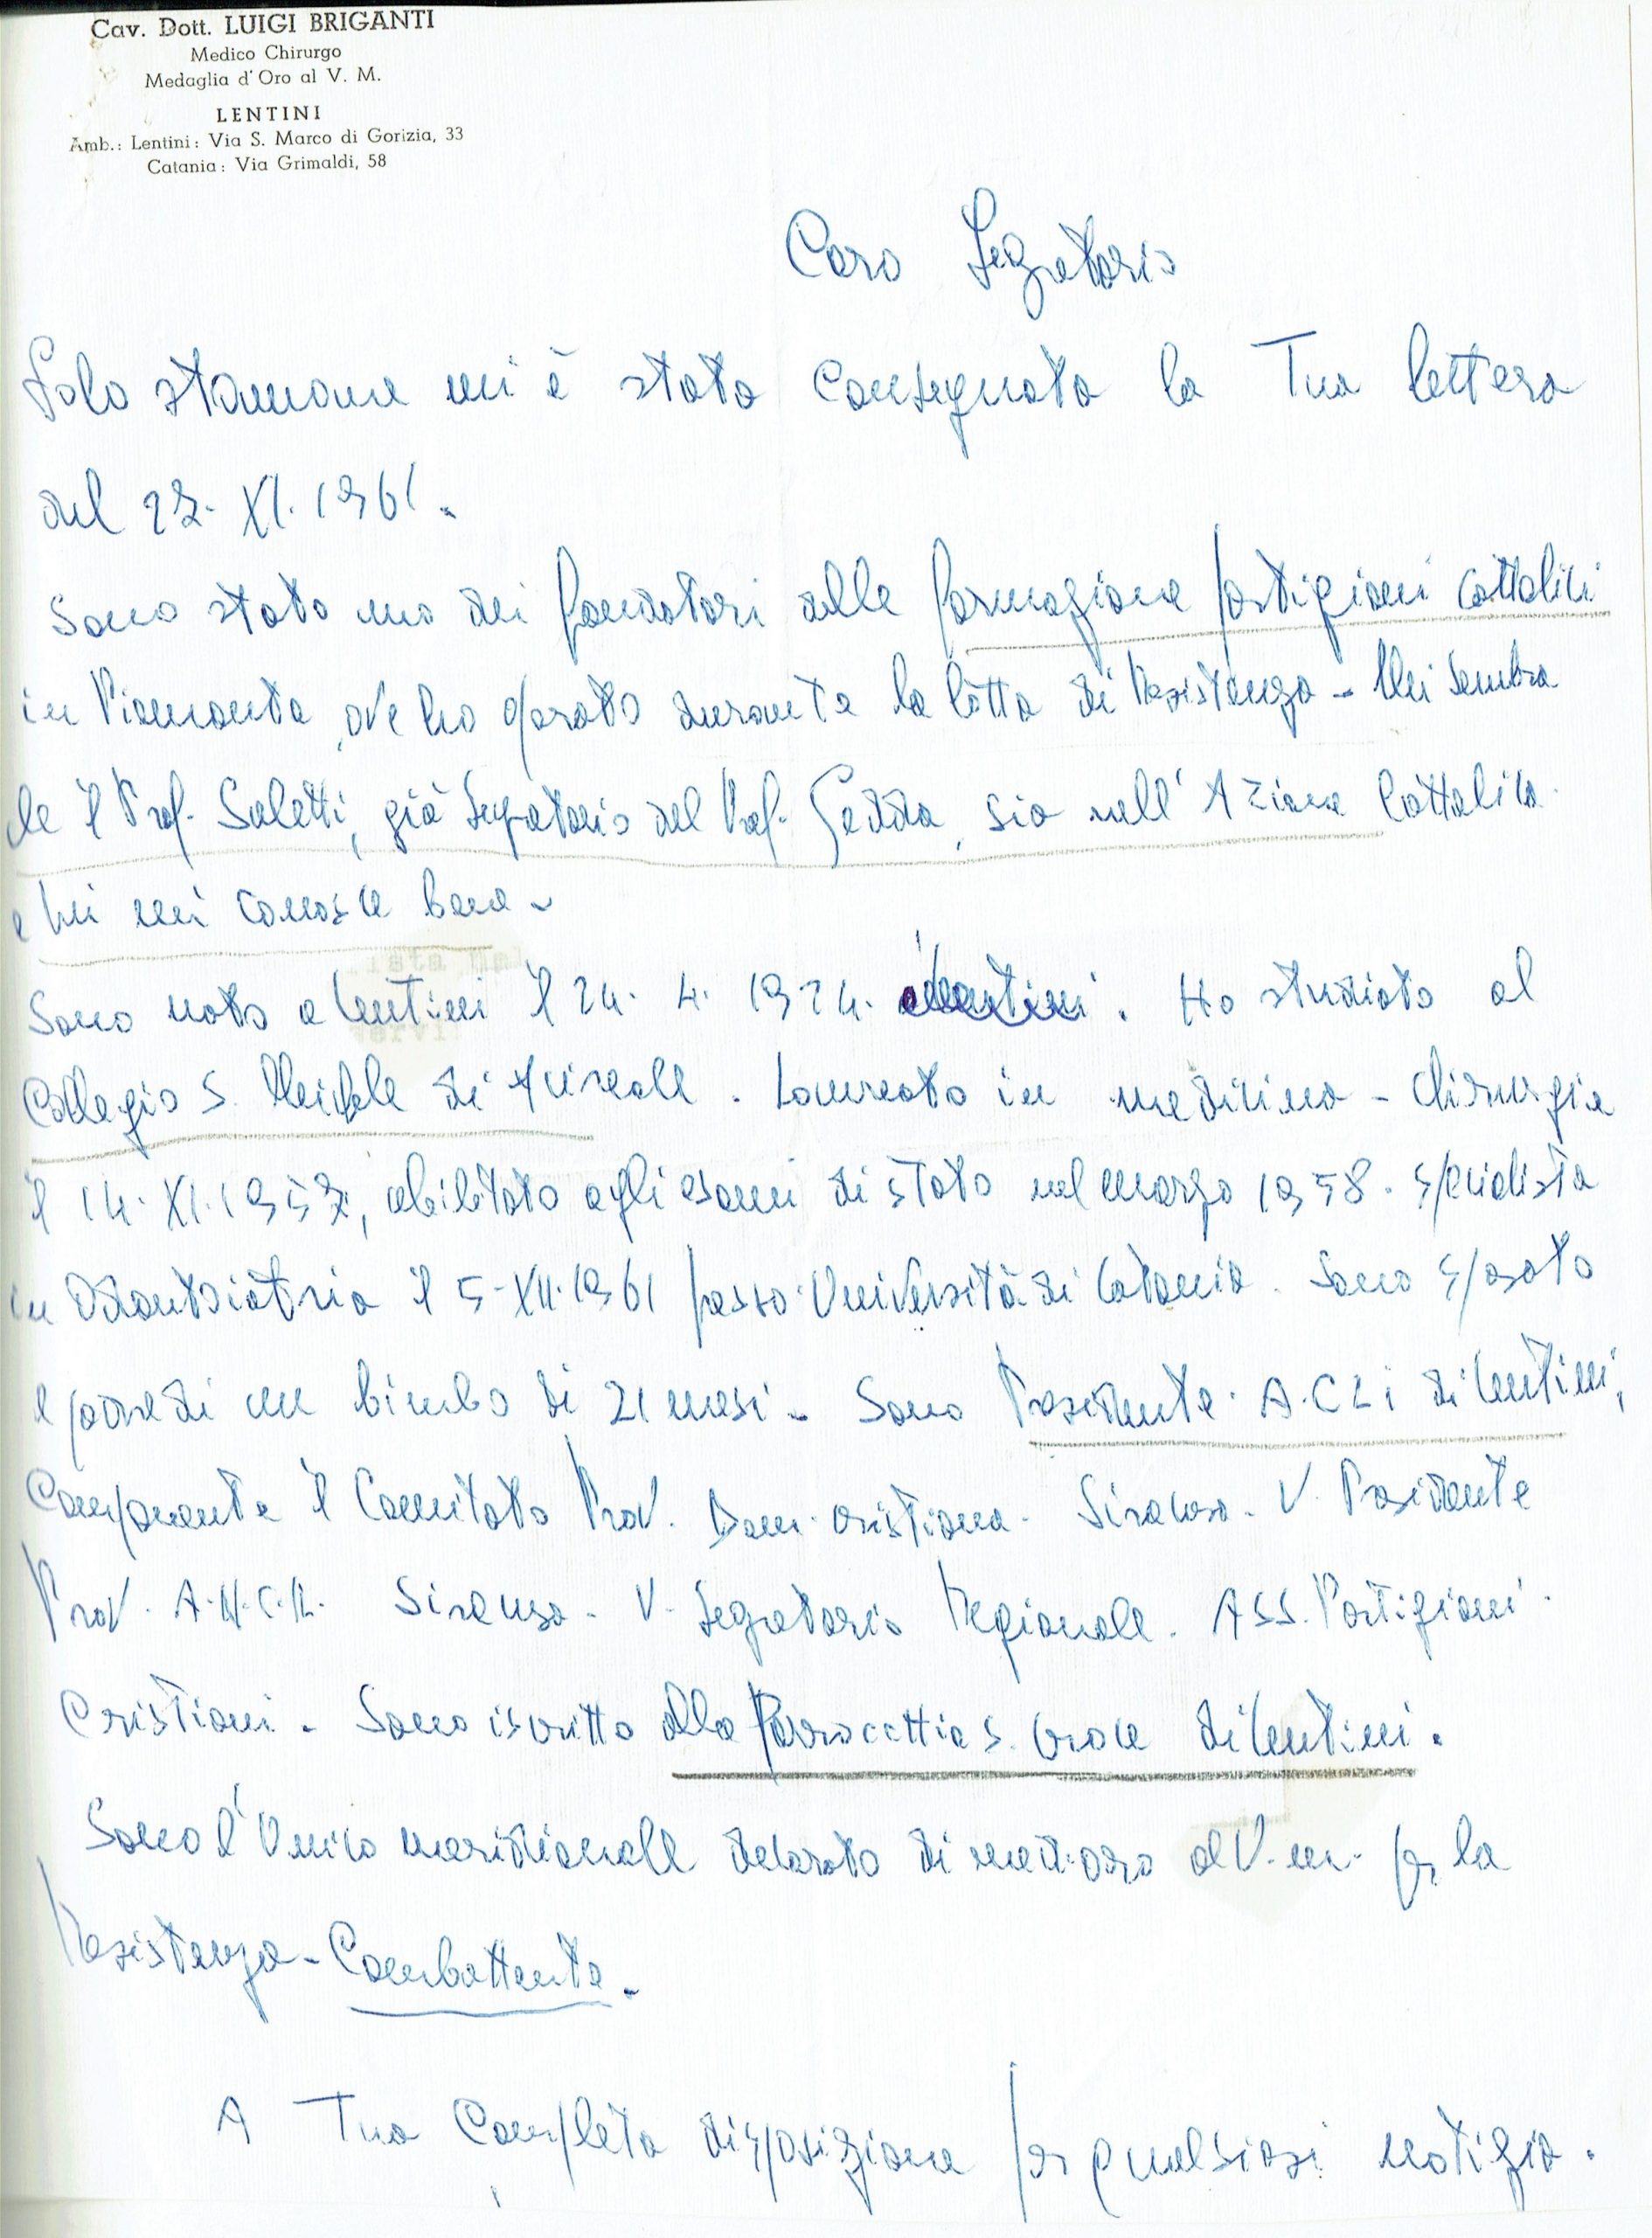 Cav. Dott. LUIGI BRIGANTI
Medico Chirurgo
Medaglia d'Oro al V. M.
LENTINI
Amb.: Lentini: Via S. Marco di Gorizia, 33
Catania: Via Grimaldi, 58
Caro Segretario
Solo stamane mi è stata consegnata la Tua lettera
del XI. 1961.
Sono stato uno dei fondatori delle formazione partigiani cattolici
in Piemonte, ove ho operato durante la lotta di Resistenza - Mi sembra
che il Prof. Saletti, già Segretario del Prof. Gedda, sia nell'Azione Cattolica
e lui mi conosce bene -
Sono nato a Lentini il 24. 4. 1924. Ho studiato al
Collegio S. Michele di Acireale. Laureato in medicina - chirurgia
il 14. XI. 1957, abilitato agli esami di stato nel marzo 1958. Specialista
in Odontoiatria il 5-XII-1961 presso Università di Catania. Sono sposato
e padre di un bimbo di 21 mesi - Sono Presidente A.C.L.I di Lentini,
Componente il Comitato Prov. Dem. Cristiana - Siracusa - V. Presidente
Prov. A.N.C.R. Siracusa - V. Segretario Regionale. Ass. Partigiani
Cristiani - Sono iscritto alla Parrocchia S. Croce di Lentini.
Sono l'Unico meridionale decorato di med. oro al V. m. per la
Resistenza - Combattente.
A Tua Completa disposizione per qualsiasi notizia.